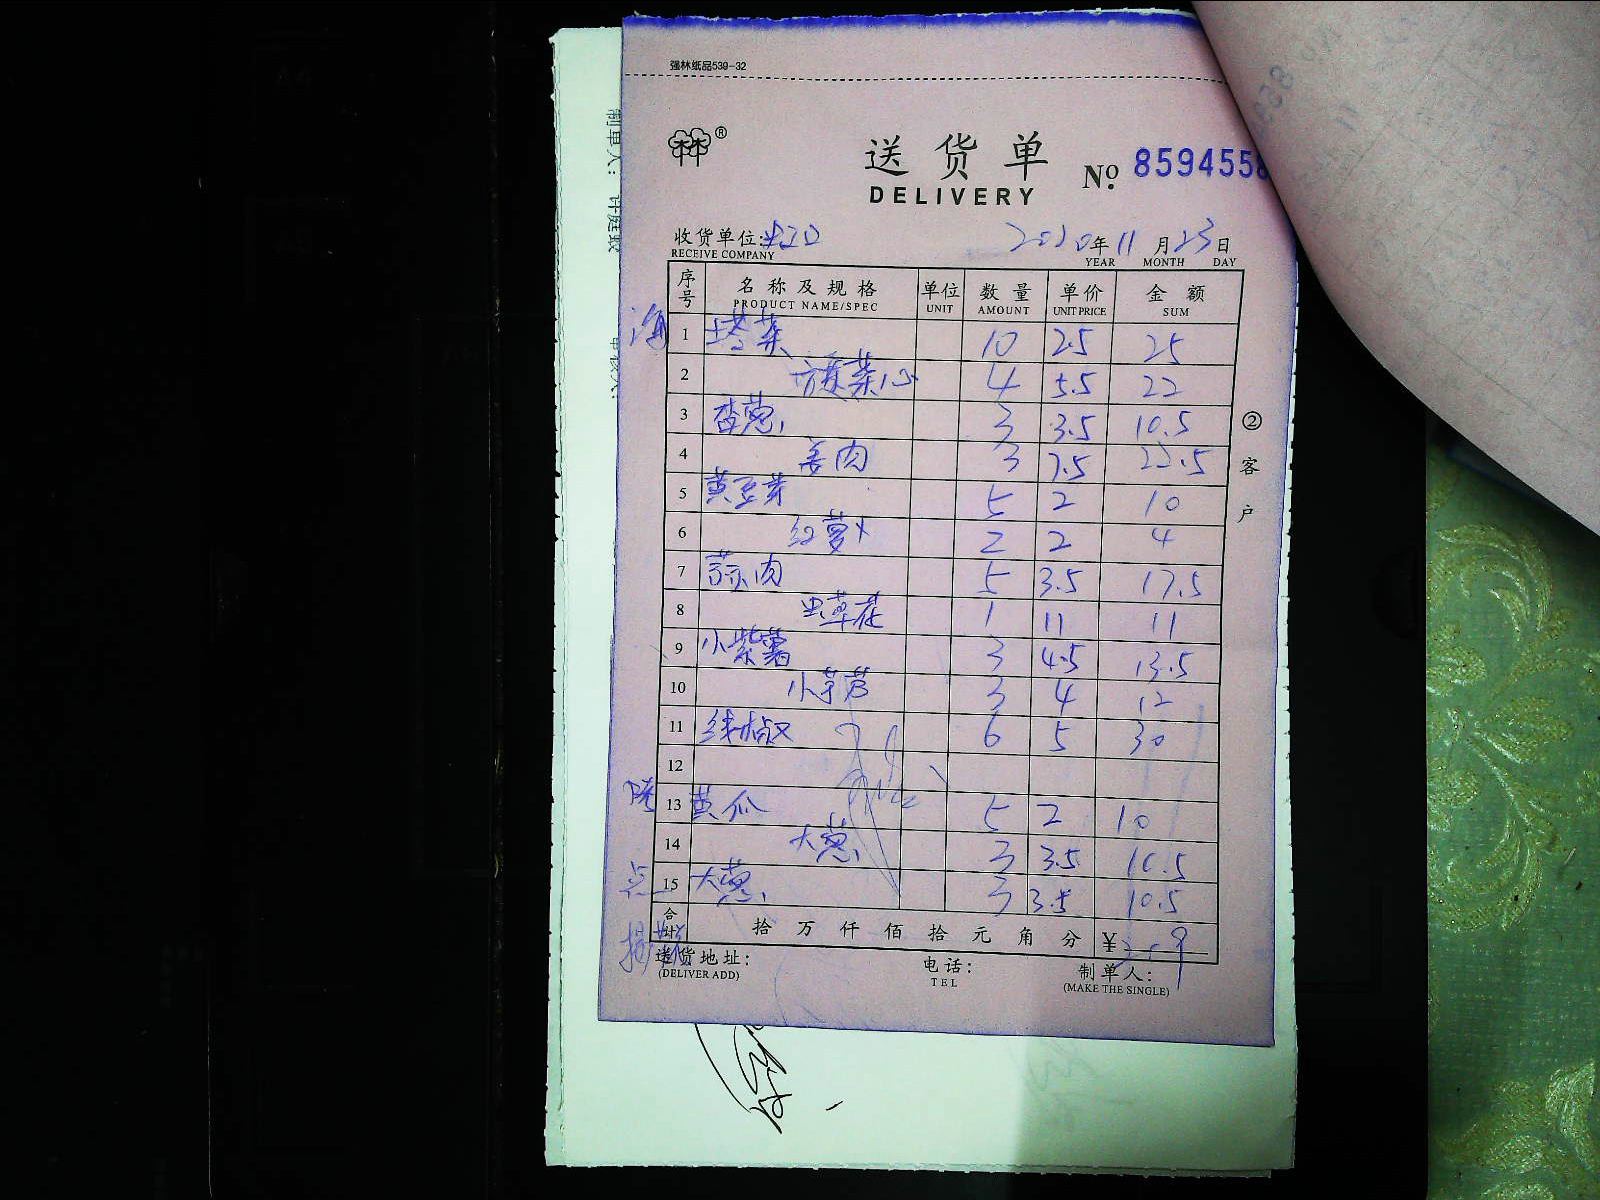 强林纸品539-32
林®
送货单
№ 8594558
DELIVERY
收货单位: 2020年11月23日
RECEIVE COMPANY YEAR MONTH DAY
序号 名称及规格 单位 数量 单价 金额
PRODUCT NAME/SPEC UNIT AMOUNT UNIT PRICE SUM
海 1 塔菜 10 2.5 25
2 菜心 4 5.5 22
3 香葱 3 3.5 10.5
4 姜肉 3 7.5 22.5
5 黄豆芽 5 2 10
6 红萝卜 2 2 4
7 蒜肉 5 3.5 17.5
8 虫草花 1 11 11
9 小紫薯 3 4.5 13.5
10 小芋艿 3 4 12
11 线椒 6 5 30
12
13 黄瓜 5 2 10
14 大葱 3 3.5 10.5
点 15 大葱 3 3.5 10.5
合计 拾 万 仟 佰 拾 元 角 分 ¥ 209
送货地址: 电话: 制单人:
(DELIVER ADD) TEL (MAKE THE SINGLE)
②客户
制单人: